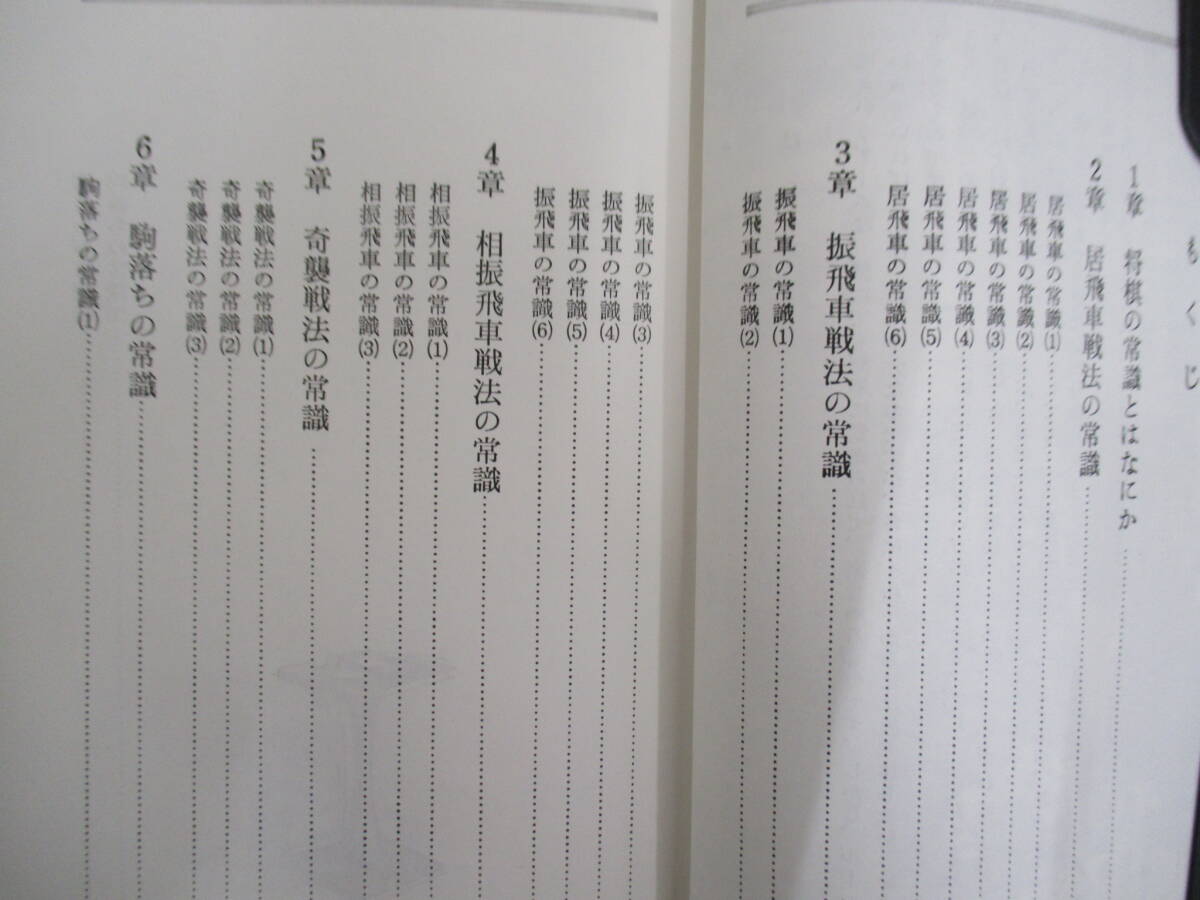 もくじ
1章　将棋の常識とはなにか
2章　居飛車戦法の常識
居飛車の常識(1)
居飛車の常識(2)
居飛車の常識(3)
居飛車の常識(4)
居飛車の常識(5)
居飛車の常識(6)
3章　振飛車戦法の常識
振飛車の常識(1)
振飛車の常識(2)
振飛車の常識(3)
振飛車の常識(4)
振飛車の常識(5)
振飛車の常識(6)
4章　相振飛車戦法の常識
相振飛車の常識(1)
相振飛車の常識(2)
相振飛車の常識(3)
5章　奇襲戦法の常識
奇襲戦法の常識(1)
奇襲戦法の常識(2)
奇襲戦法の常識(3)
6章　駒落ちの常識
駒落ちの常識(1)